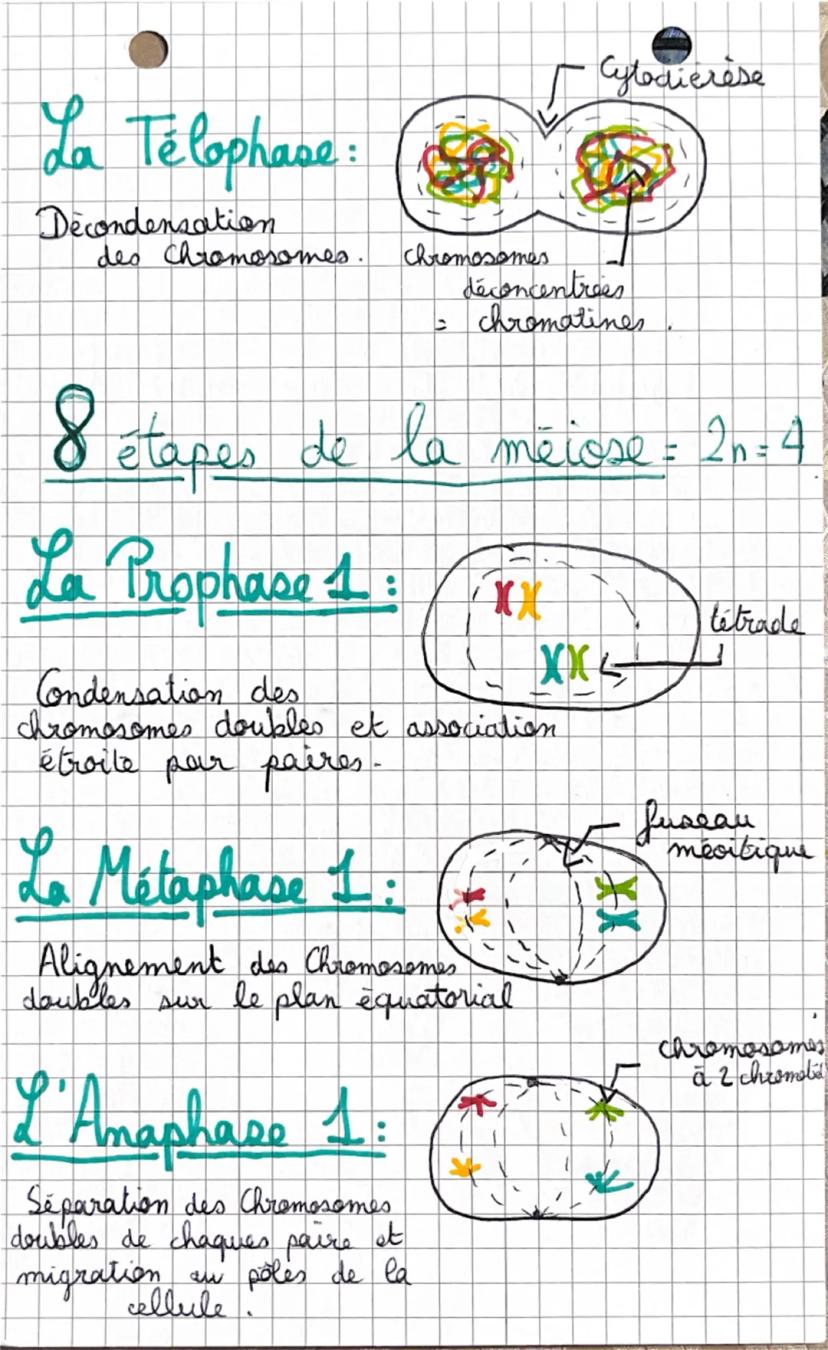 Cytodiérèse
La Télophase :
Décondensation
des Chromosomes.
chromosomes
déconcentrées
= chromatines.
8 étapes de la méiose = 2n = 4
La Prophase 1 :
tétrade
Condensation des
chromosomes doubles et association
étroite par paires.
fuseau
méoitique
La Métaphase 1 :
Alignement des Chromosomes
doubles sur le plan équatorial
chromosomes
à 2
L'Anaphase 1 :
Séparation des Chromosomes
doubles de chaques paire et
migration au pôles de la
cellule.